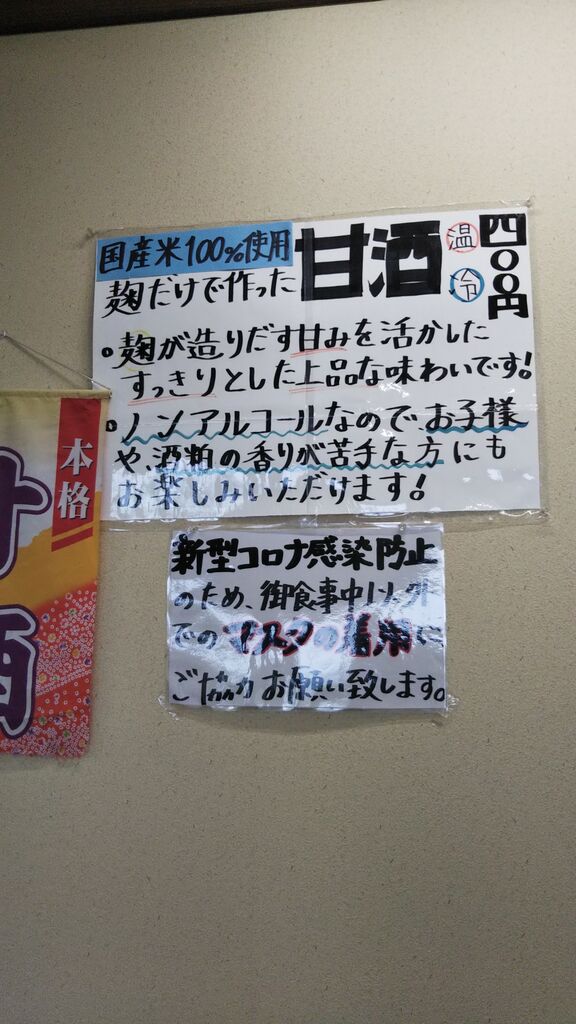 国産米100%使用
麹だけで作った
甘酒
温
冷
四〇〇円
・麹が造りだす甘みを活かした
すっきりとした上品な味わいです!
・ノンアルコールなのでお子様
や、酒粕の香りが苦手な方にも
お楽しみいただけます!
本格
甘酒
新型コロナ感染防止
のため、御食事中以外
でのマスクの着用に
ご協力お願い致します。